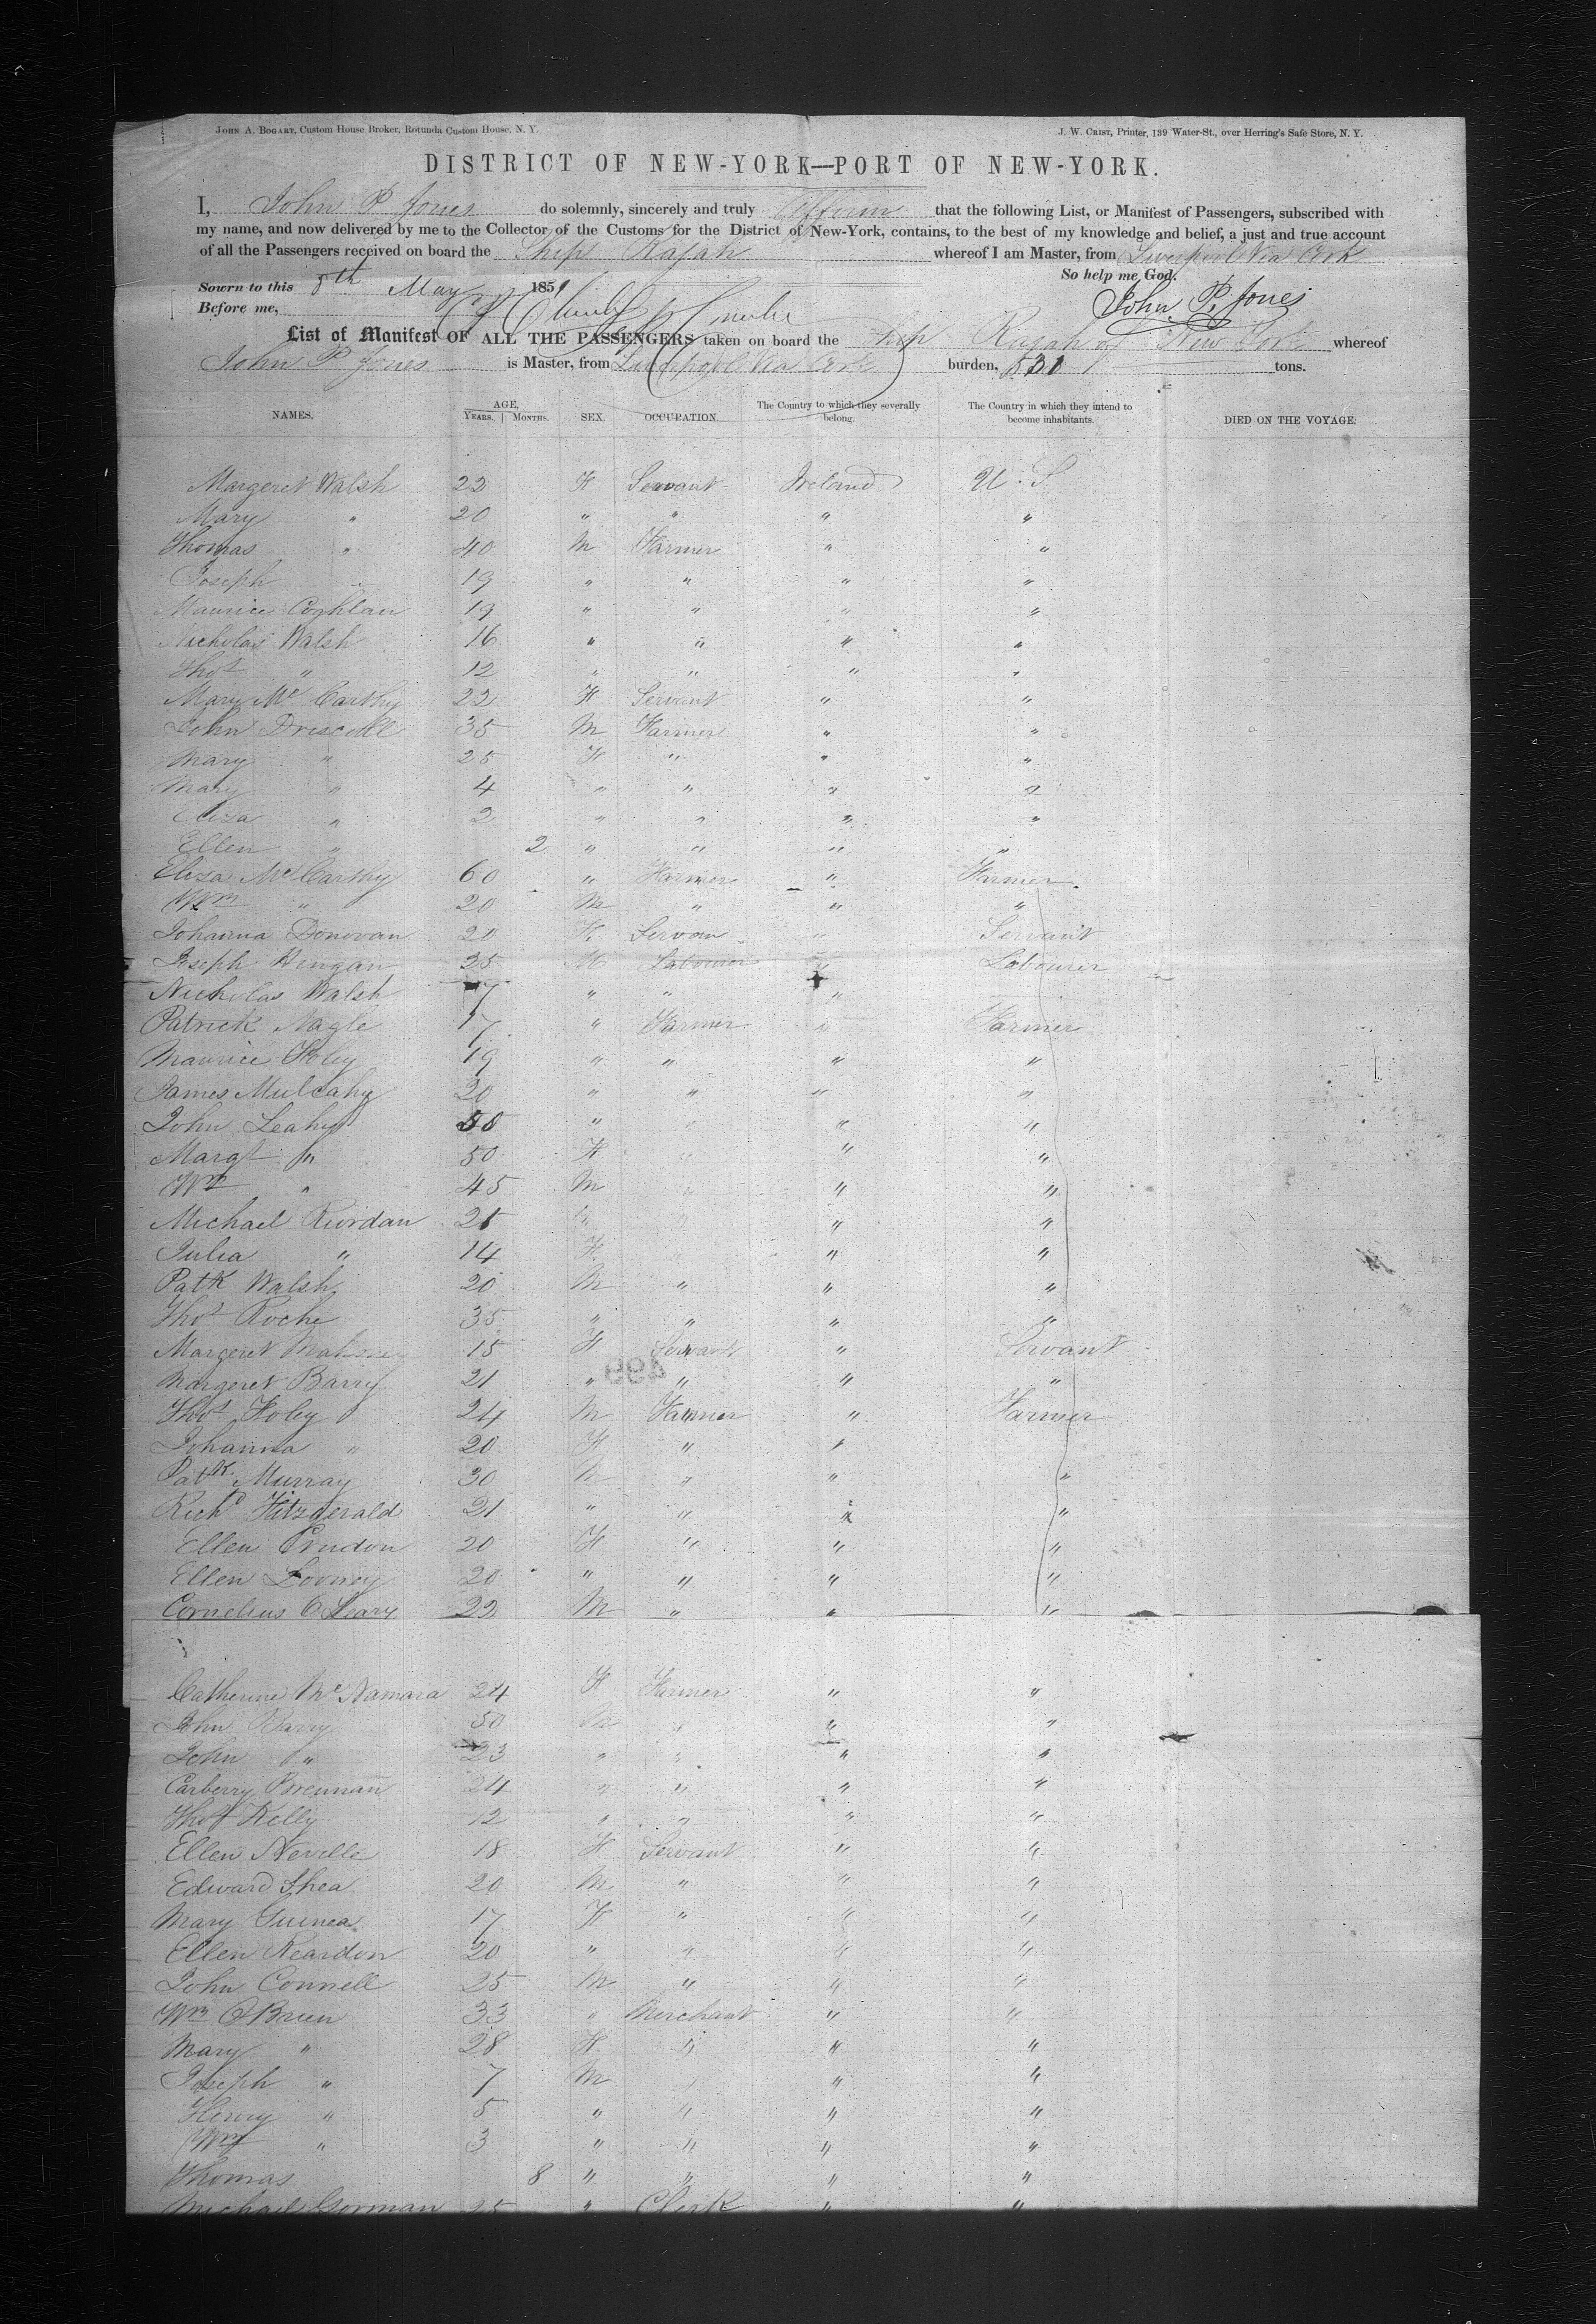 JOHN A. BOGART, Custom House Broker, Rotunda Custom House, N. Y. J. W. CRIST, Printer, 139 Water-St., over Herring's Safe Store, N. Y.
DISTRICT OF NEW-YORK—PORT OF NEW-YORK.
I, John P Jones do solemnly, sincerely and truly affirm that the following List, or Manifest of Passengers, subscribed with
my name, and now delivered by me to the Collector of the Customs for the District of New-York, contains, to the best of my knowledge and belief, a just and true account
of all the Passengers received on board the Ship Rajah whereof I am Master, from Liverpool Via Cork
So help me God.
Sworn to this 8th May 1851
John. P. Jones
Before me,
List of Manifest OF ALL THE PASSENGERS taken on board the Ship Rajah of New York whereof
John P Jones is Master, from Liverpool Via Cork burden, 531 tons.
NAMES. AGE, YEARS. MONTHS. SEX. OCCUPATION. The Country to which they severally belong. The Country in which they intend to become inhabitants. DIED ON THE VOYAGE.
Margeret Walsh 22 F Servant Ireland U. S.
Mary " 20 " " " "
Thomas " 40 M Farmer " "
Joseph " 19 " " " "
Maurice Coghlan 19 " " " "
Nicholas Walsh 16 " " " "
Thos " 12 " " " "
Mary Mc Carthy 22 F Servant " "
John Driscoll 35 M Farmer " "
Mary " 25 F " " "
Mary " 4 " " " "
Eliza " 2 " " " "
Ellen " 2 " " " "
Eliza McCarthy 60 " Farmer " Farmer
Wm " 20 M " " "
Johanna Donovan 20 F. Servan " Servant
Joseph 25 M Labourer " Labourer
Nicholas Walsh 17 " " "
Patrick Nagle 17 " Farmer " Farmer
Maurice Foley 19 " " " "
James Mulcahy 20 " " " "
John Leahy " " " "
Margt " 50 F " " "
Wm " 45 M " " "
Michael Riordan 25 " " " "
Julia " 14 F. " "
Patk Walsh 20 M " " "
Thos Roche 35 " " " "
Margeret Mahoney 15 F Servant " Servant
Margeret Barry 21 " " " "
499
Thos Foley 24 M Farmer " Farmer
Johanna " 20 F " "
Patk Murray 30 M " " "
Richd Fitzgerald 21 " " " "
Ellen 20 F " " "
Ellen Looney 20 " " " "
Cornelius O Leary 22 M " " "
Catherine McNamara 24 F Farmer " "
John Barry 50 M " " "
John " 23 " " " "
Carberry Brennan 24 " " " "
Thos Kelly 12 " " " "
Ellen Neville 18 F Servant " "
Edward Shea 20 M " " "
Mary Guinea 17 F " " "
Ellen Reardon 20 " " " "
John Connell 25 M " " "
Wm OBrien 33 " Merchant " "
Mary " 28 F " " "
Joseph " 7 M " " "
Henry " 5 " " " "
Wm " 3 " " " "
Thomas 8 " " " "
Michael Gorman 25 " Clerk " "